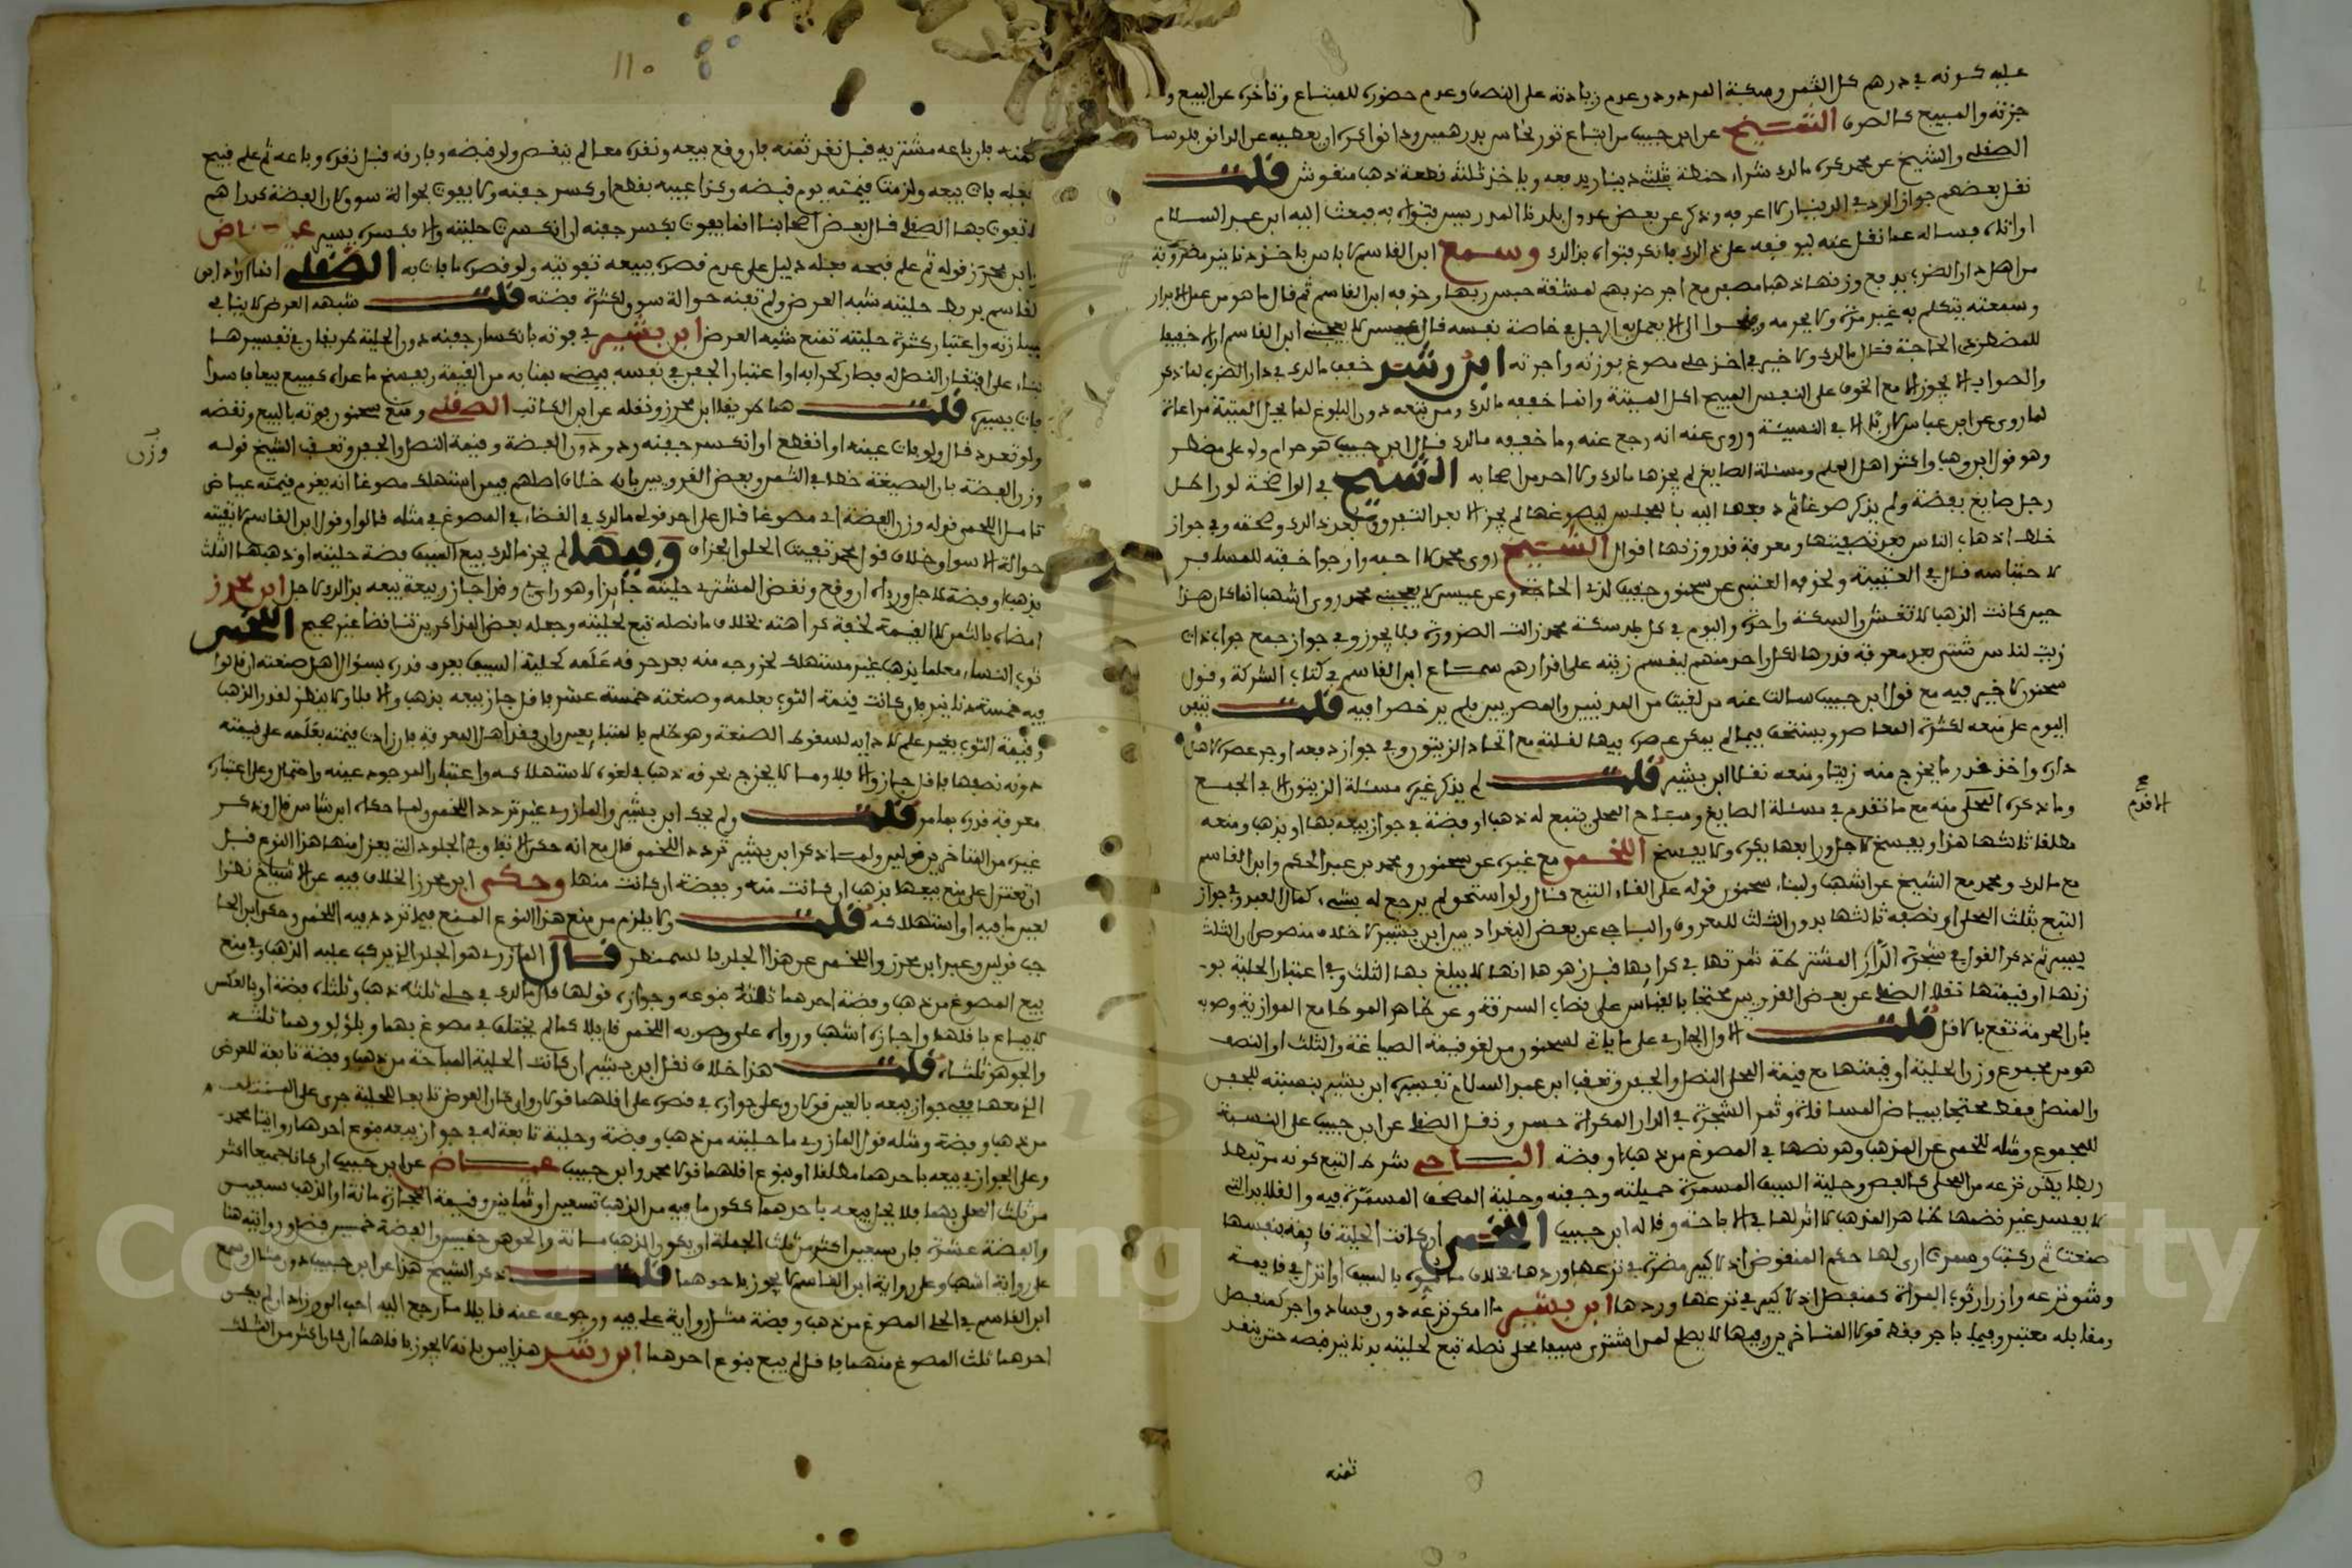 عليه كونه في درهم كل الثمن وسكة المردود وعدم زيادته على النصف وعدم حضوره للمبتاع وتأخره عن البيع و
جزته والمبيع كالصرف الشيخ عن ابن حبيب من ابتاع ثور نحاس بدرهمين ودانق لكره ان يعطيه عن الدانق فلوسا
الصقلي والشيخ عن محمد كره مالك شراء حنطة بثلثي دينار يدفعه وياخذ ثلثه قطعة ذهب منقوش قلت
نقل بعضهم جواز الرد في الدينار لا اعرفه وذكر عن بعض عدول بلدنا المدرسين فتواه به فبعث اليه ابن عبد السلام
او انا فساله عما نقل عنه ليوقفه على ذلك فانكر فتواه بذلك وسمع ابن القاسم لا باس ياخذ دنانير مضروبة
من اهل دار الضرب يدفع وزنها ذهبا مصبرا مع اجر ضربهم لمشقة حبس ربها وخوفه ابن القاسم ثم قال ما هو من عمل الابرار
وسمعته يتكلم به غير مرة ولا يحرمه وارجوا ان لا يعمل به الرجل في خاصة نفسه قال عيسى لا يعجبني ابن القاسم اراه خفيفا
للمضطر ذي الحاجة فقال مالك ولا خير في اخذ حلي مصوغ بوزنه واجرته ابن رشد خفف مالك في دار الضرب لما ذكر
والصواب الا يجوز الا مع الخوف على النفس المبيح اكل الميتة وانما خففه مالك ومن تبعه دون البلوغ لما يحل الميتة مراعاة
لما روى عن ابن عباس لا ربا الا في النسيئة وروى عنه انه رجع عنه وما خففه مالك قال ابن حبيب هو حرام ولو على مضطر
وهو قول ابن وهب واكثر اهل العلم ومسئلة الصايغ لم يجزها مالك ولا احد من اصحابه الشيخ في الواضحة لو راطل
رجل صايغ بفضة ولم يذكر صوغا ثم دفعها اليه بالمجلس ليصوغها لم يجز الا بعد التفرق وبعد ذلك وصحته وفي جواز
خلط اذهاب الناس بعد تصفيتها ومعرفة قدر وزنها اقوال الشيخ روى محمد لا احبه وارجوا خفته للمسافر
لاحتباسه قال في العتبية ونحوه العتبي عن سحنون وخفف لذي الحاجة وعن عيسى لا يعجبني محمد روى اشهب انما كان هذا
حين كانت الذهب لا تغش والسكة واحدة واليوم في كل بلد سكة محمد زالت الضرورة فلا يجوز وفي جواز جمع حب ذات
زيت لناس شتى بعد معرفة قدرها لكل واحد منهم ليقسم زيته على اقدارهم سماع ابن القاسم في كتاب الشركة وقول
سحنون لا خير فيه مع قول ابن حبيب سالت عنه من لقيت من المدنيين والمصريين فلم يرخصوا فيه قلت يتفق
اليوم على منعه لكثرة المعاصر ويستخف فيما لم يمكن عصره بيها لقلته مع اتحاد الزيتون وفي جواز دفعه اوجر عصره لاهل
داره واخذ قدر ما يخرج منه زيتا ومنعه نقلا ابن بشير قلت لم يذكر غيره مسئلة الزيتون الا في الجميع
وما ذكره المحكي منه مع ما تقدم في مسئلة الصايغ ومباح المحلى يتبع له ذهب او فضة في جواز بيعه بها او بذهب ومنعه
الاقدم
مطلقا ثالثها هذا ويفسخ لاجل ورابعها يكره ولا يفسخ اللخمي مع غيره عن سحنون ومحمد بن عبد الحكم وابن القاسم
مع مالك ومحمد مع الشيخ عن اشهب ولبناء سحنون قوله على الغاء التبع قال ولو استحق لم يرجع له بشيء كمال العبد وفي جواز
التبع بثلث المحلى او نصفه ثالثها بدون الثلث للمعروف والباجي عن بعض البغداديين ابن بشير لا خلاف منصوص ان الثلث
يسير ثم ذكر القول في شجرة الدار المشتركة ثمرتها في كرائها قبل زهوها انها لا يبلغ بها الثلث وفي اعتبار الحلية بو-
زنها او قيمتها نقلا الصقلي عن بعض القرويين محتجا بالقياس على نصاب السرقة وعن ظاهر الموطا مع الموازية وصوبه
بان الحرمة تقع بالاقل قلت الاول الجاري على ما ياتي لسحنون من لغو قيمة الصياغة والثلث او النصف
هو من مجموع وزن الحلية او قيمتها مع قيمة المحلى النصل والجفن وتعقب ابن عبد السلام تفسيره ابن بشير بنصيبه للجفن
والنصل فقط محتجا ببياض المساقاة وثمر الشجرة في الدار المكراة حسن ونقل الصقلي عن ابن حبيب على النسبة
للمجموع ومثله للخمي عن المذهب وهو نصها في المصوغ من ذهب وفضة الباجي شرط التبع كونه مرتبطا
ربطا يضر نزعه من المحلى كالفص وحلية السيف المسمرة حميلته وجفنه وحلية المصحف المسمرة فيه والقلايد التي
لا يفسد غير نظمها ظاهر المذهب لا اثر لها في الاباحة وقاله ابن حبيب اللخمي ان كانت الحلية قايمة بنفسها
صنعت ثم ركبت وسمرت ارى لها حكم المنقوض اذ لا كبير مضرة في نزعها وردها بخلاف منقوش بالسيف او انزل في قايمه
وشق نزعه وازرار ثوب المراة كمنفصل اذ لا كبير في نزعها وردها ابن بشير ما امكن نزعه دون فساد واجر كمنفصل
ومقابله معتبر وفيما باجر فقط قولا المتاخرين وفيها لا يصلح لمن اشترى سيفا محلى نصله تبع لحليته بدنانير قبضه حتى ينقد
ثمنه
١١٠
ثمنه فان باعه مشتريه قبل نقد ثمنه فان وقع بيعه ونقده معا لم ينقض ولو قبضه وفارقه قبل نقده وباعه ثم علم قبح
فعله فات بيعه ولزمت قيمته يوم قبضه وكذا عيبه بقطع او كسر جفنه ولا يفوت بحوالة سوق لان الفضة كدراهم
لا تفوت بها الصقلي قال بعض اصحابنا انما يفوت بكسر جفنه ان انكسرت حليته والا فكسره يسير عياض
ابن محرز قوله ثم علم قبحه فعله دليل على عدم قصره ببيعه تفويته ولو قصده ما فات به الصقلي انما اراد ابن
القاسم بربط حليته شبه العرض ولم تفته حوالة سوق لكثرة فضته قلت شبهه العرض لا ينافي
يسارته واعتبار كثرة حليته تمنع شبه العرض ابن بشير في فوته بانكسار جفنه دون الحلية طريقان في تفسيرها
بناء على افتقار النصل له فصار كجزئه او اعتبار الجفن في نفسه فيضمنه بمنابه من القيمة ويفسخ ما عداه كمبيع بيعا فاسدا
فات يسيره قلت هما طريقا ابن محرز ونقله عن ابن الكاتب الصقلي ومنع سحنون فوته بالبيع ونقضه
ولو تعدد قال ولو فات عينه او انقطع او انكسر جفنه رد وزن الفضة وقيمة النصل والجفن وتعقب الشيخ قوله
وزن
وزن الفضة بان الصيغة خطا في الثمن وبعض القرويين بانه خلاف اصلهم فيمن استهلك مصوغا انه يغرم قيمته عياض
تاملا اللخمي قوله وزن الفضة اي مصوغا قال على احد قولي مالك في القضاء في المصوغ في مثله قالوا وقول ابن القاسم لا يفيته
حوالة الاسواق خلاف قول محمد تفيت الحلي الجزاف وفيها لم يجز مالك بيع السيف فضة حليته او ذهبها الثلث
بذهب او فضة لاجل ورد ان وقع ونقض المشتري حليته جايزا وهو راي وقد اجاز ربيعة بيعه بذلك لاجل ابن محرز
امضاه بالثمن لا القيمة لخفة كراهته بخلاف ما نصله تبع لحليته وجعله بعض المذاكرين تناقضا غير صحيح اللخمي
ثوب النساء معلما بذهب غير مستهلك لخروجه منه بعد حرقه علمه كحلية السيف يعرف قدره بسؤال اهل صنعته ان قالوا
فيه خمسة دنانير فان كانت قيمة الثوب بعلمه وصنعته خمسة عشر فاقل جاز بيعه بذهب والا فلا ولا ينظر لقدر الذهب
وقيمة الثوب بغير علم لادايه لسقوط الصنعة وهو ظلم بالمبتاع يعيره وان فقد اهل المعرفة فان زادت قيمته بعلمه على قيمته
دونه نصفها فاقل جاز والا فلا وما لا يخرج بحرقه ذهب في لغوه لاستهلاكه واعتبار الموجود عينه واحتمال وعلى اعتباره
معرفة قدره بما مر قلت ولم يحك ابن بشير والمازري غير تردد اللخمي ولما حكاه ابن شاس قال وذكر
غيره من المتاخرين قولين ولما ذكر ابن بشير تردد اللخمي قال مع انه حكى الاتفاق في الجلود التي يعزل منها هذا النوع قبل
ان تغتزل على منع بيعها بذهب ان كانت منه وبفضة ان كانت منها وحكى ابن محرز الخلاف فيه عن الاشياخ نظرا
لعين ما فيه او استهلاكه قلت ولا يلزم من منع هذا النوع المنع فيما تردد فيه اللخمي وحكى ابن الحا
جب قولين وعبر ابن محرز واللخمي عن هذا الجلد بالسمنطر قال المازري هو الجلد الذي ركب عليه الذهب وفي منع
بيع المصوغ من ذهب وفضة احدهما ثلثه بنوعه وجوازه قولها قال مالك في حلي ثلثه ذهب وثلثاه فضة او بالعكس
لا يباع باقلهما واجازه اشهب ورواه علي وصوبه اللخمي قايلا كما لم يختلف في مصوغ بهما وبلؤلؤ وهما ثلثه
والجوهر ثلثاه قلت هذا خلاف نقل ابن بشير ان كانت الحلية المباحة من ذهب وفضة تابعة للعرض
الذي معها ففي جواز بيعه بالعين قولان وعلى جوازه في قصره على اقلهما قولان وان كان العرض تابعا للحلية جرى على المسئلة
من ذهب وفضة ومثله قول المازري ما حليته من ذهب وفضة وحلية تابعة له في جواز بيعه بنوع احدهما روايتا محمد
وعلى الجواز في بيعه باحدهما مطلقا او بنوع اقلهما قولا محمد وابن حبيب عياض عن ابن حبيب ان كانا جميعا اكثر
من ثلث النصل بهما فلا يجوز بيعه باحدهما ككون ما فيه من الذهب تسعين او ثمانين وقيمة الحجارة مائة او الذهب سبعين
والفضة عشرة فان سبعين اكثر من ثلث الجملة او يكون الذهب مائة والجوهر خمسين والفضة خمسين قصر وروايته هنا
على رواية اشهب وعلى رواية ابن القاسم لا يجوز باحدهما قلت ذكر الشيخ هذا عن ابن حبيب دون مثال وسمع
ابن القاسم في الحلي المصوغ من ذهب وفضة مثل رواية علي فيه ورجوعه عنه قايلا ما رجع اليه احب الي وزاد ان لم يكن
احدهما ثلث المصوغ منهما فاقل لم يبع بنوع احدهما ابن رشد هذا بين بانه لا يجوز باقلهما ان كان اكثر من الثلث